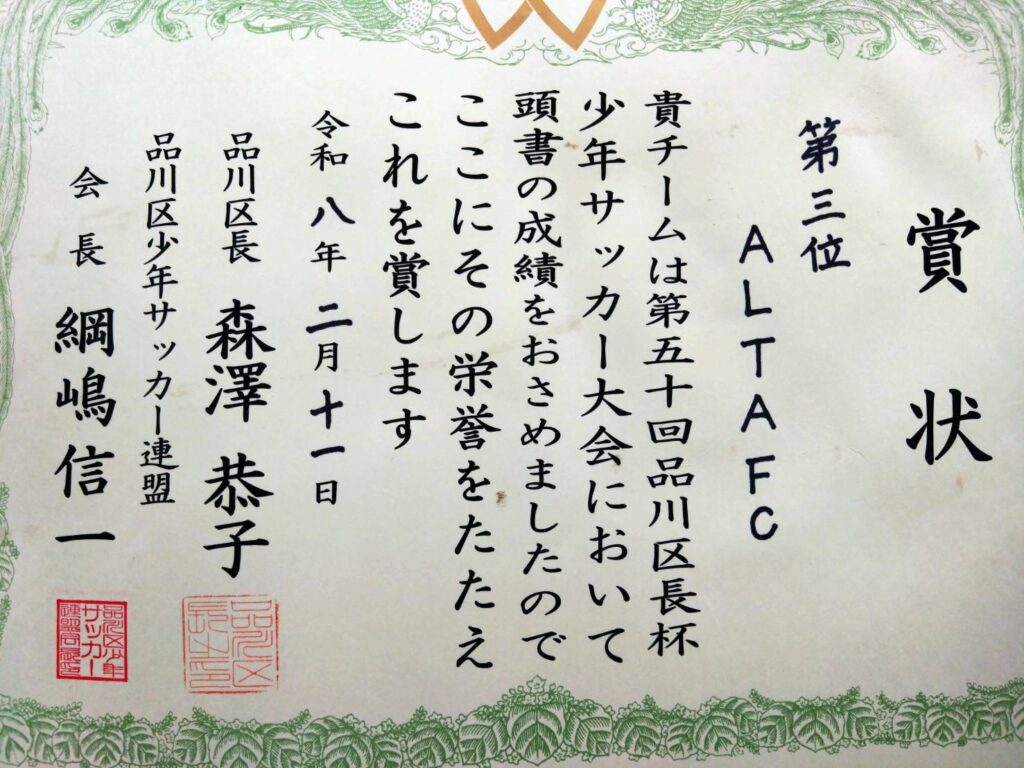 賞状
第三位
ALTAFC
貴チームは第五十回品川区長杯
少年サッカー大会において
頭書の成績をおさめましたので
ここにその栄誉をたたえ
これを賞します
令和八年二月十一日
品川区長 森澤恭子
品川区少年サッカー連盟
会長 綱嶋信一
品川区
長之印
品川区少年
サッカー